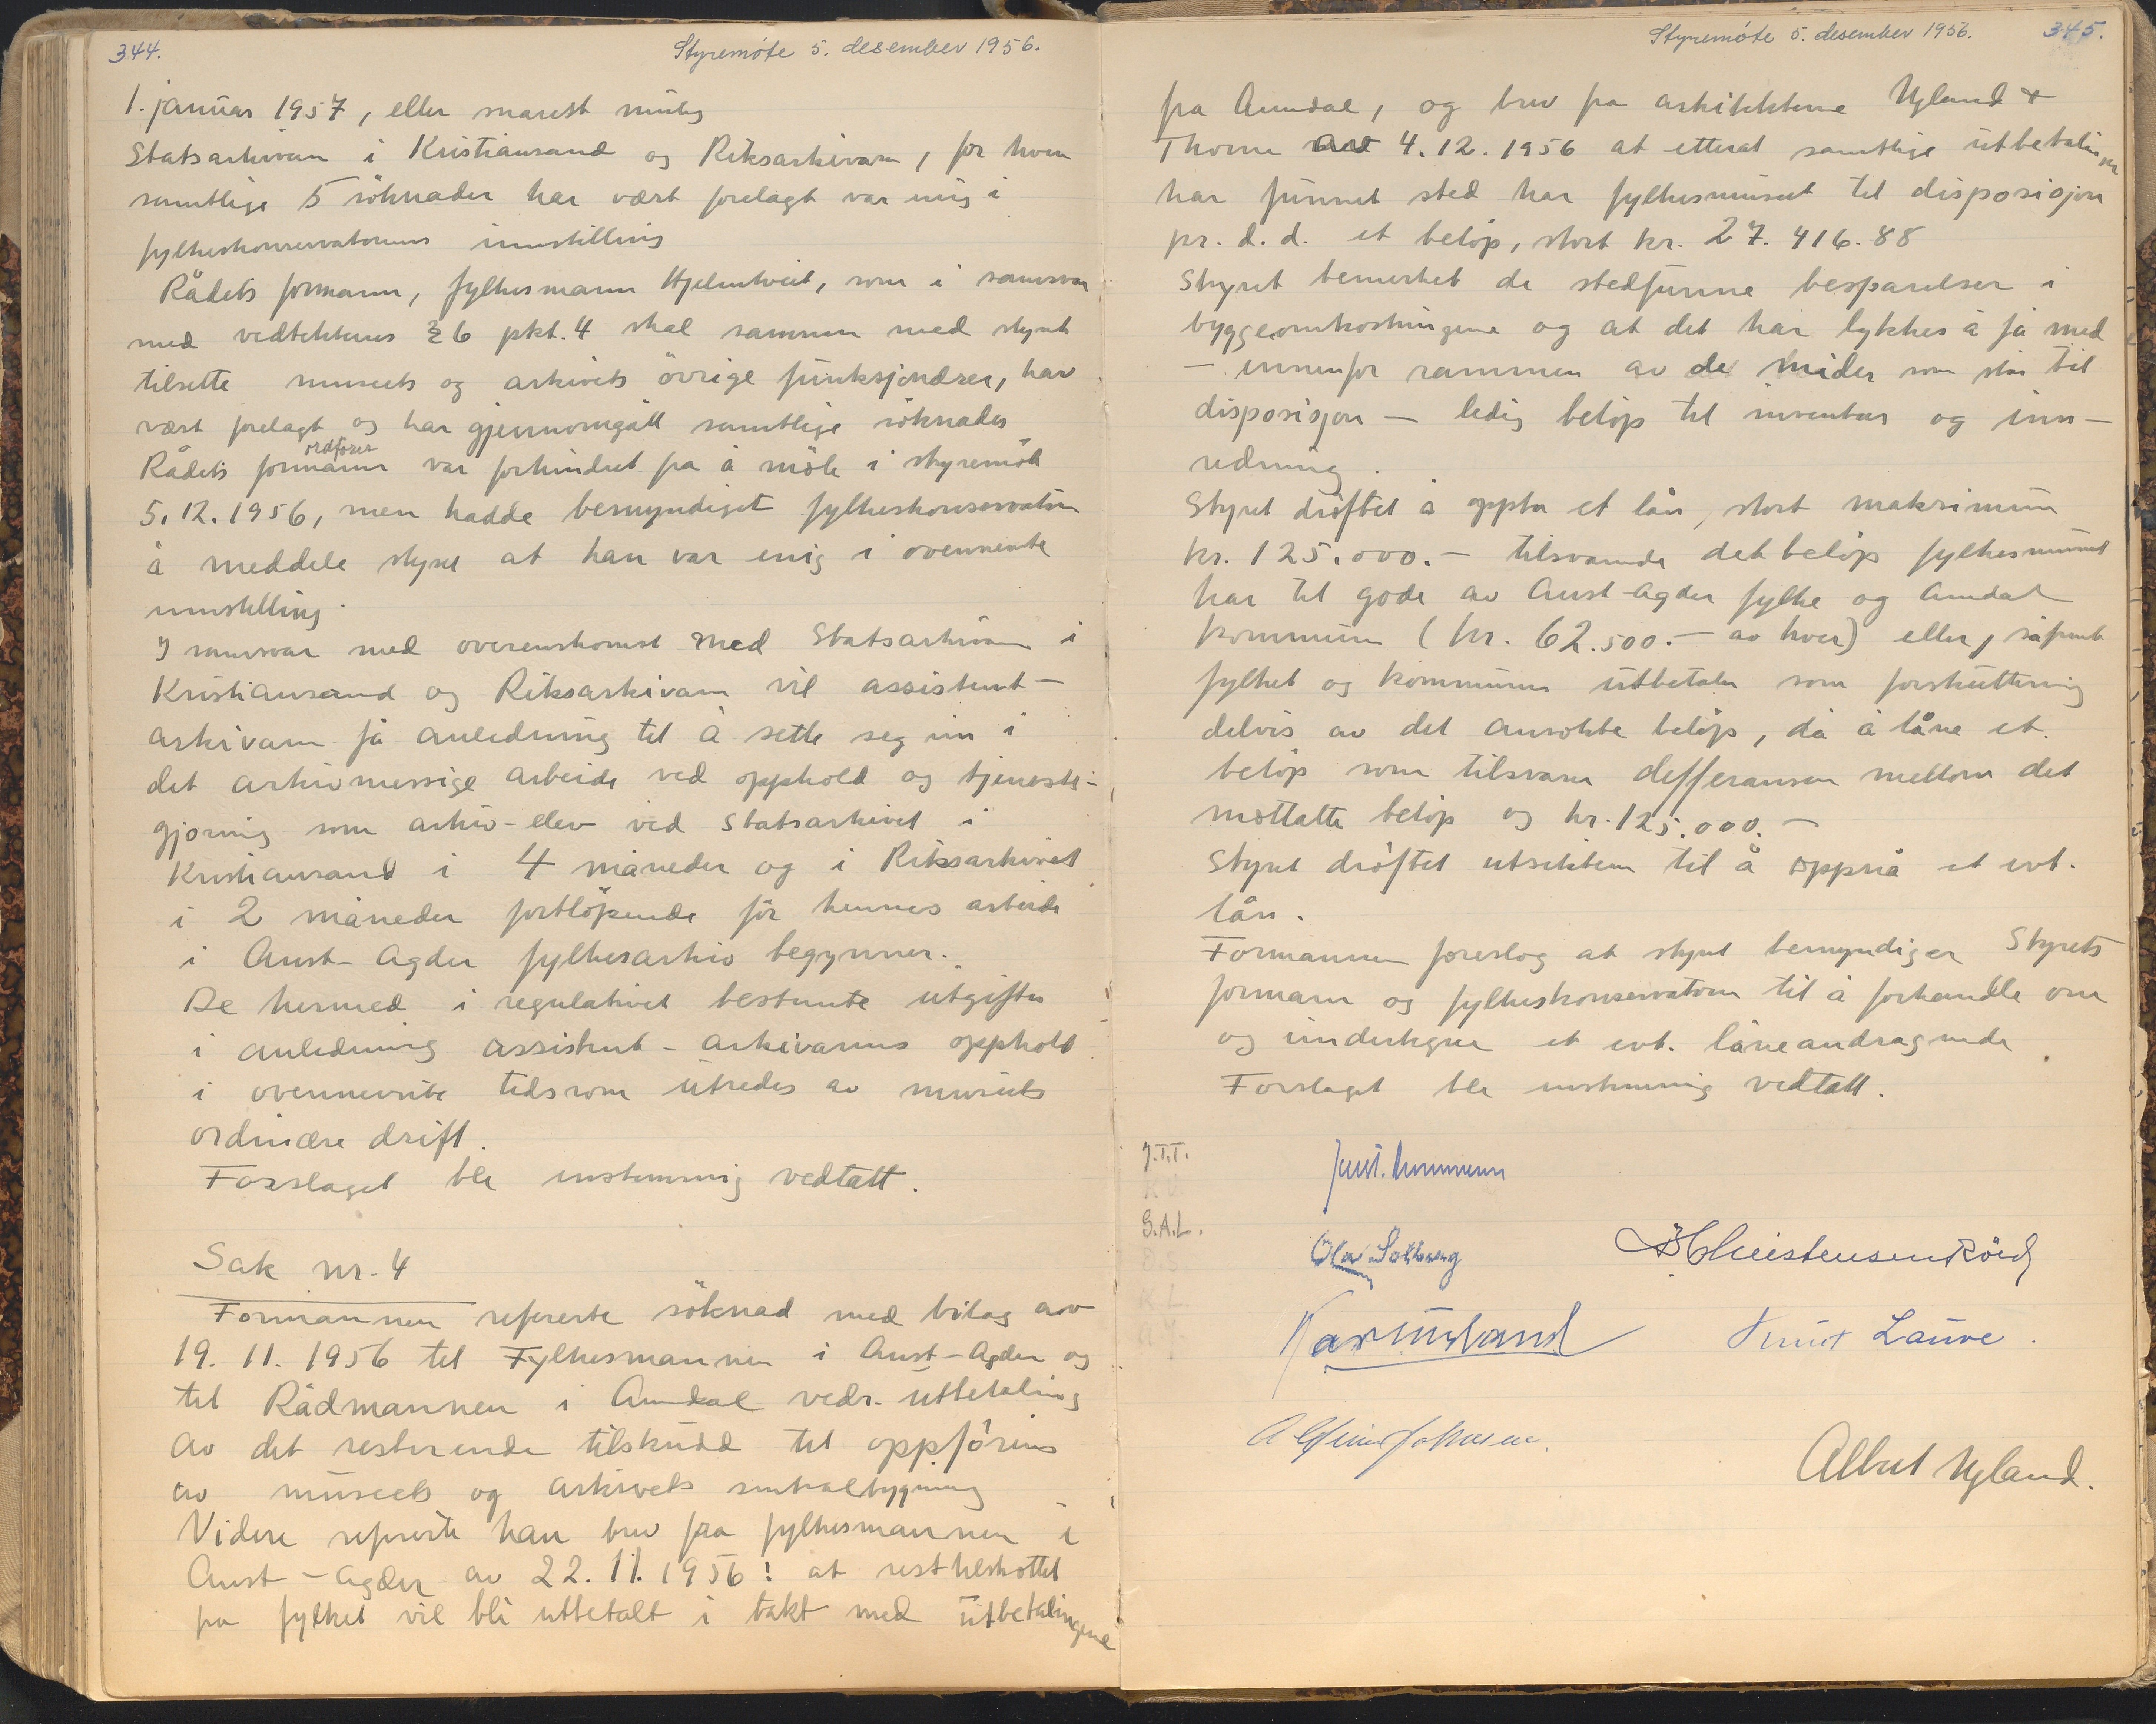 344.
Styremöte 5. desember 1956.
1. januar 1957, eller snarest mulig
Statsarkivaren i Kristiansand og Riksarkivaren, for hvem
samtlige 5 söknader har vært forelagt var enig i
fylkeskonservatorens innstilling
Rådets formann, fylkesmann Hjelmtveit, som i samsvar
med vedtektenes § 6 pkt. 4 skal sammen med styret
tilsette museets og arkivets övrige funksjonærer, har
vært forelagt og har gjennomgått samtlige söknader
ordförer
Rådets formann var forhindret fra å möte i styremöte
5.12.1956, men hadde bemyndiget fylkeskonservatoren
å meddele styret at han var enig i ovennevnte
innstilling.
I samsvar med overenskomst med Statsarkivaren i
Kristiansand og Riksarkivaren vil assistent-
arkivaren få anledning til å sette seg inn i
det arkivmessige arbeide ved opphold og tjeneste-
gjöring som arkiv-elev ved Statsarkivet i
Kristiansand i 4 måneder og i Riksarkivet
i 2 måneder fortlöpende för hennes arbeide
i Aust-Agder fylkesarkiv begynner.
De hermed i regulativet bestemte utgifter
i anledning assistent-arkivarens opphold
i ovennevnte tidsrom utredes av museets
ordinære drift.
Forslaget ble enstemmig vedtatt.
Sak nr. 4
Formannen refererte söknad med bilag av
19. 11. 1956 til Fylkesmannen i Aust-Agder og
til Rådmannen i Arendal vedr. utbetaling
av det resterende tilskudd til oppföring
av museets og arkivets sentralbygning
Videre refererte han brev fra fylkesmannen i
Aust-Agder av 22. 11. 1956: at resttilskottet
fra fylket vil bli utbetalt i takt med utbetalingene
Styremöte 5. desember 1956.
345.
fra Arendal, og brev fra arkitektene Ugland &
Thorne av 4.12.1956 at etterat samtlige utbetalinger
har funnet sted har fylkesmuseet til disposisjon
pr. d.d. et belöp, stort kr. 27.416.88
Styret bemerket de stedfunne besparelser i
byggeomkostningene og at det har lykkes å få med
- innenfor rammen av de midler som står til
disposisjon - ledig belöp til inventar og inn-
redning.
Styret dröftet å oppta et lån, stort maksimum
kr. 125.000.- tilsvarende det belöp fylkesmuseet
har til gode av Aust-Agder fylke og Arendal
kommune (kr. 62.500.- av hver) eller, såfremt
fylket og kommunen utbetaler som forskuttering
delvis av det ansökte belöp, da å låne et
belöp som tilsvarer defferansen mellom det
mottatte belöp og kr. 125.000.-
Styret dröftet utsiktene til å oppnå et evt.
lån.
Formannen foreslog at styret bemyndiger Styrets
formann og fylkeskonservatoren til å forhandle om
og undertegne et evt. låneandragende.
Forslaget ble enstemmig vedtatt.
J.T.T.
G.A.L.
Olav Solberg
B Christensen Röed
Knut Lauve.
Albert Ugland.